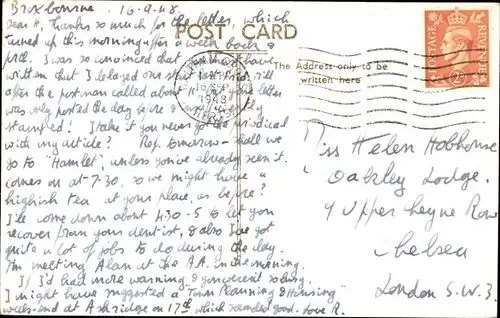 Broxbourne. 16.9.48.
Dear H, Thanks so much for the letter, which
turned up this morning after a week back &
I was so convinced that have
written that I delayed our start till
after the postman called about 11. Your letter
was only posted the day before &
stamped! I take it you never got the periodical
with my article? Ref. tomorrow - shall we
go to "Hamlet", unless you've already seen it.
comes on at 7-30, so we might have a
highish tea at your place, as before?
I'll come down about 4.30-5 to let you
recover from your dentist, & also I've got
quite a lot of jobs to do during the day.
I'm meeting Alan at the A.A. in the morning.
If I'd had more warning & you weren't so busy
I might have suggested a "Town Planning & Housing"
week-end at Ashridge on 17th, which sounded good. Love R.
POST CARD
The Address only to be
written here
POSTAGE REVENUE
16 SEP
1948
Miss Helen Hobhouse
"Oakley Lodge.
9 Upper Cheyne Row
Chelsea
London S.W.3.